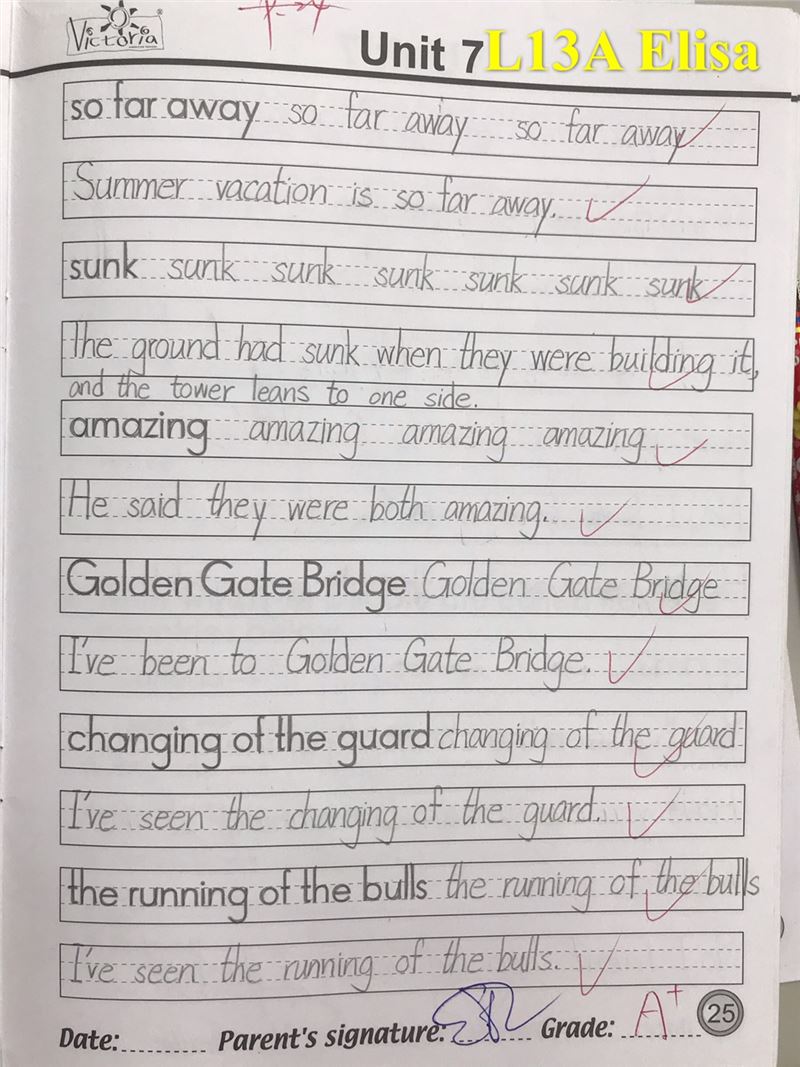 Victoria
Unit 7 L13A Elisa
so far away so far away so far away
Summer vacation is so far away.
sunk sunk sunk sunk sunk sunk sunk
The ground had sunk when they were building it,
and the tower leans to one side.
amazing amazing amazing amazing
He said they were both amazing.
Golden Gate Bridge Golden Gate Bridge
I've been to Golden Gate Bridge.
changing of the guard changing of the guard
I've seen the changing of the guard.
the running of the bulls the running of the bulls
I've seen the running of the bulls.
Date: Parent's signature: Grade: A+ 25